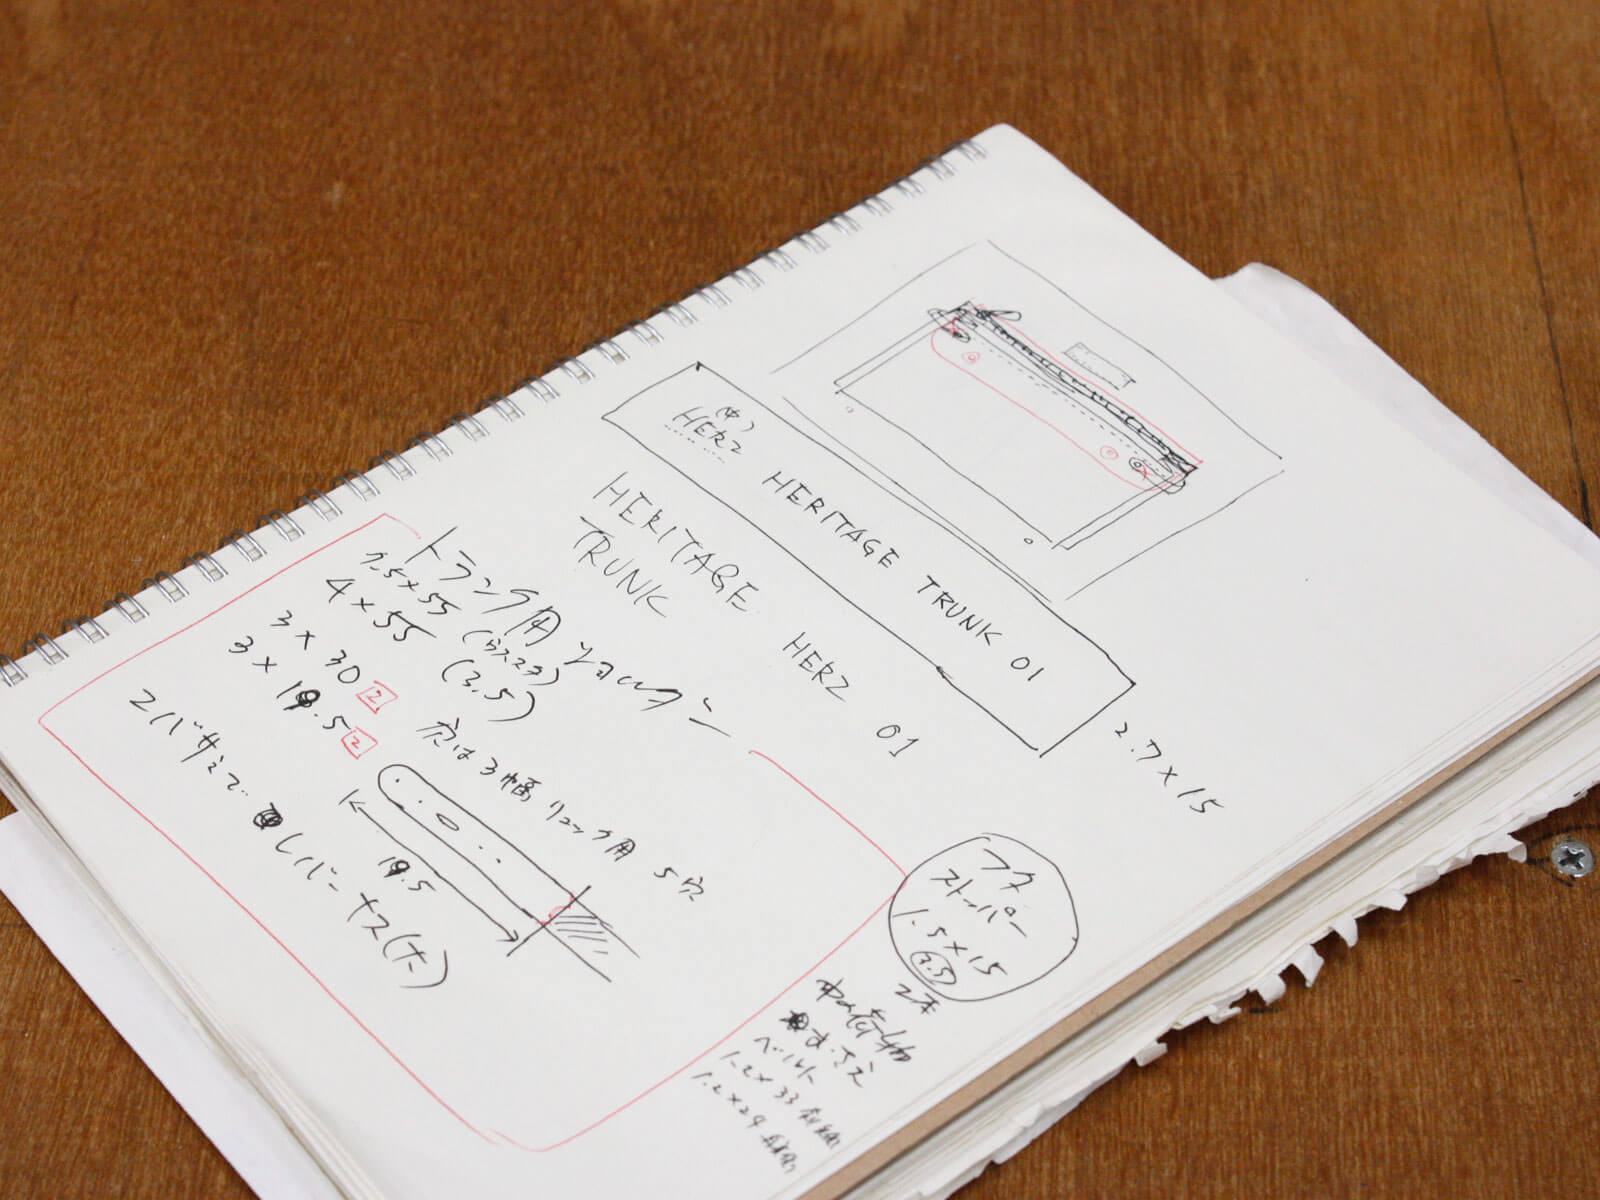 (中)
HERZ HERITAGE TRUNK 01
2.7×15
HERITAGE
TRUNK HERZ 01
トランク用ショルダー
7.5×55 (穴スタ)
4×55 (3.5)
3×30 2
3×19.5 2
穴は3幅リュック用 5穴
コバサミで
レバーナス(大)
19.5
フタ
ストッパー
1.5×15
(3.5)
2本
中の荷物
おさえ
ベルト
1.2×33
1.2×29